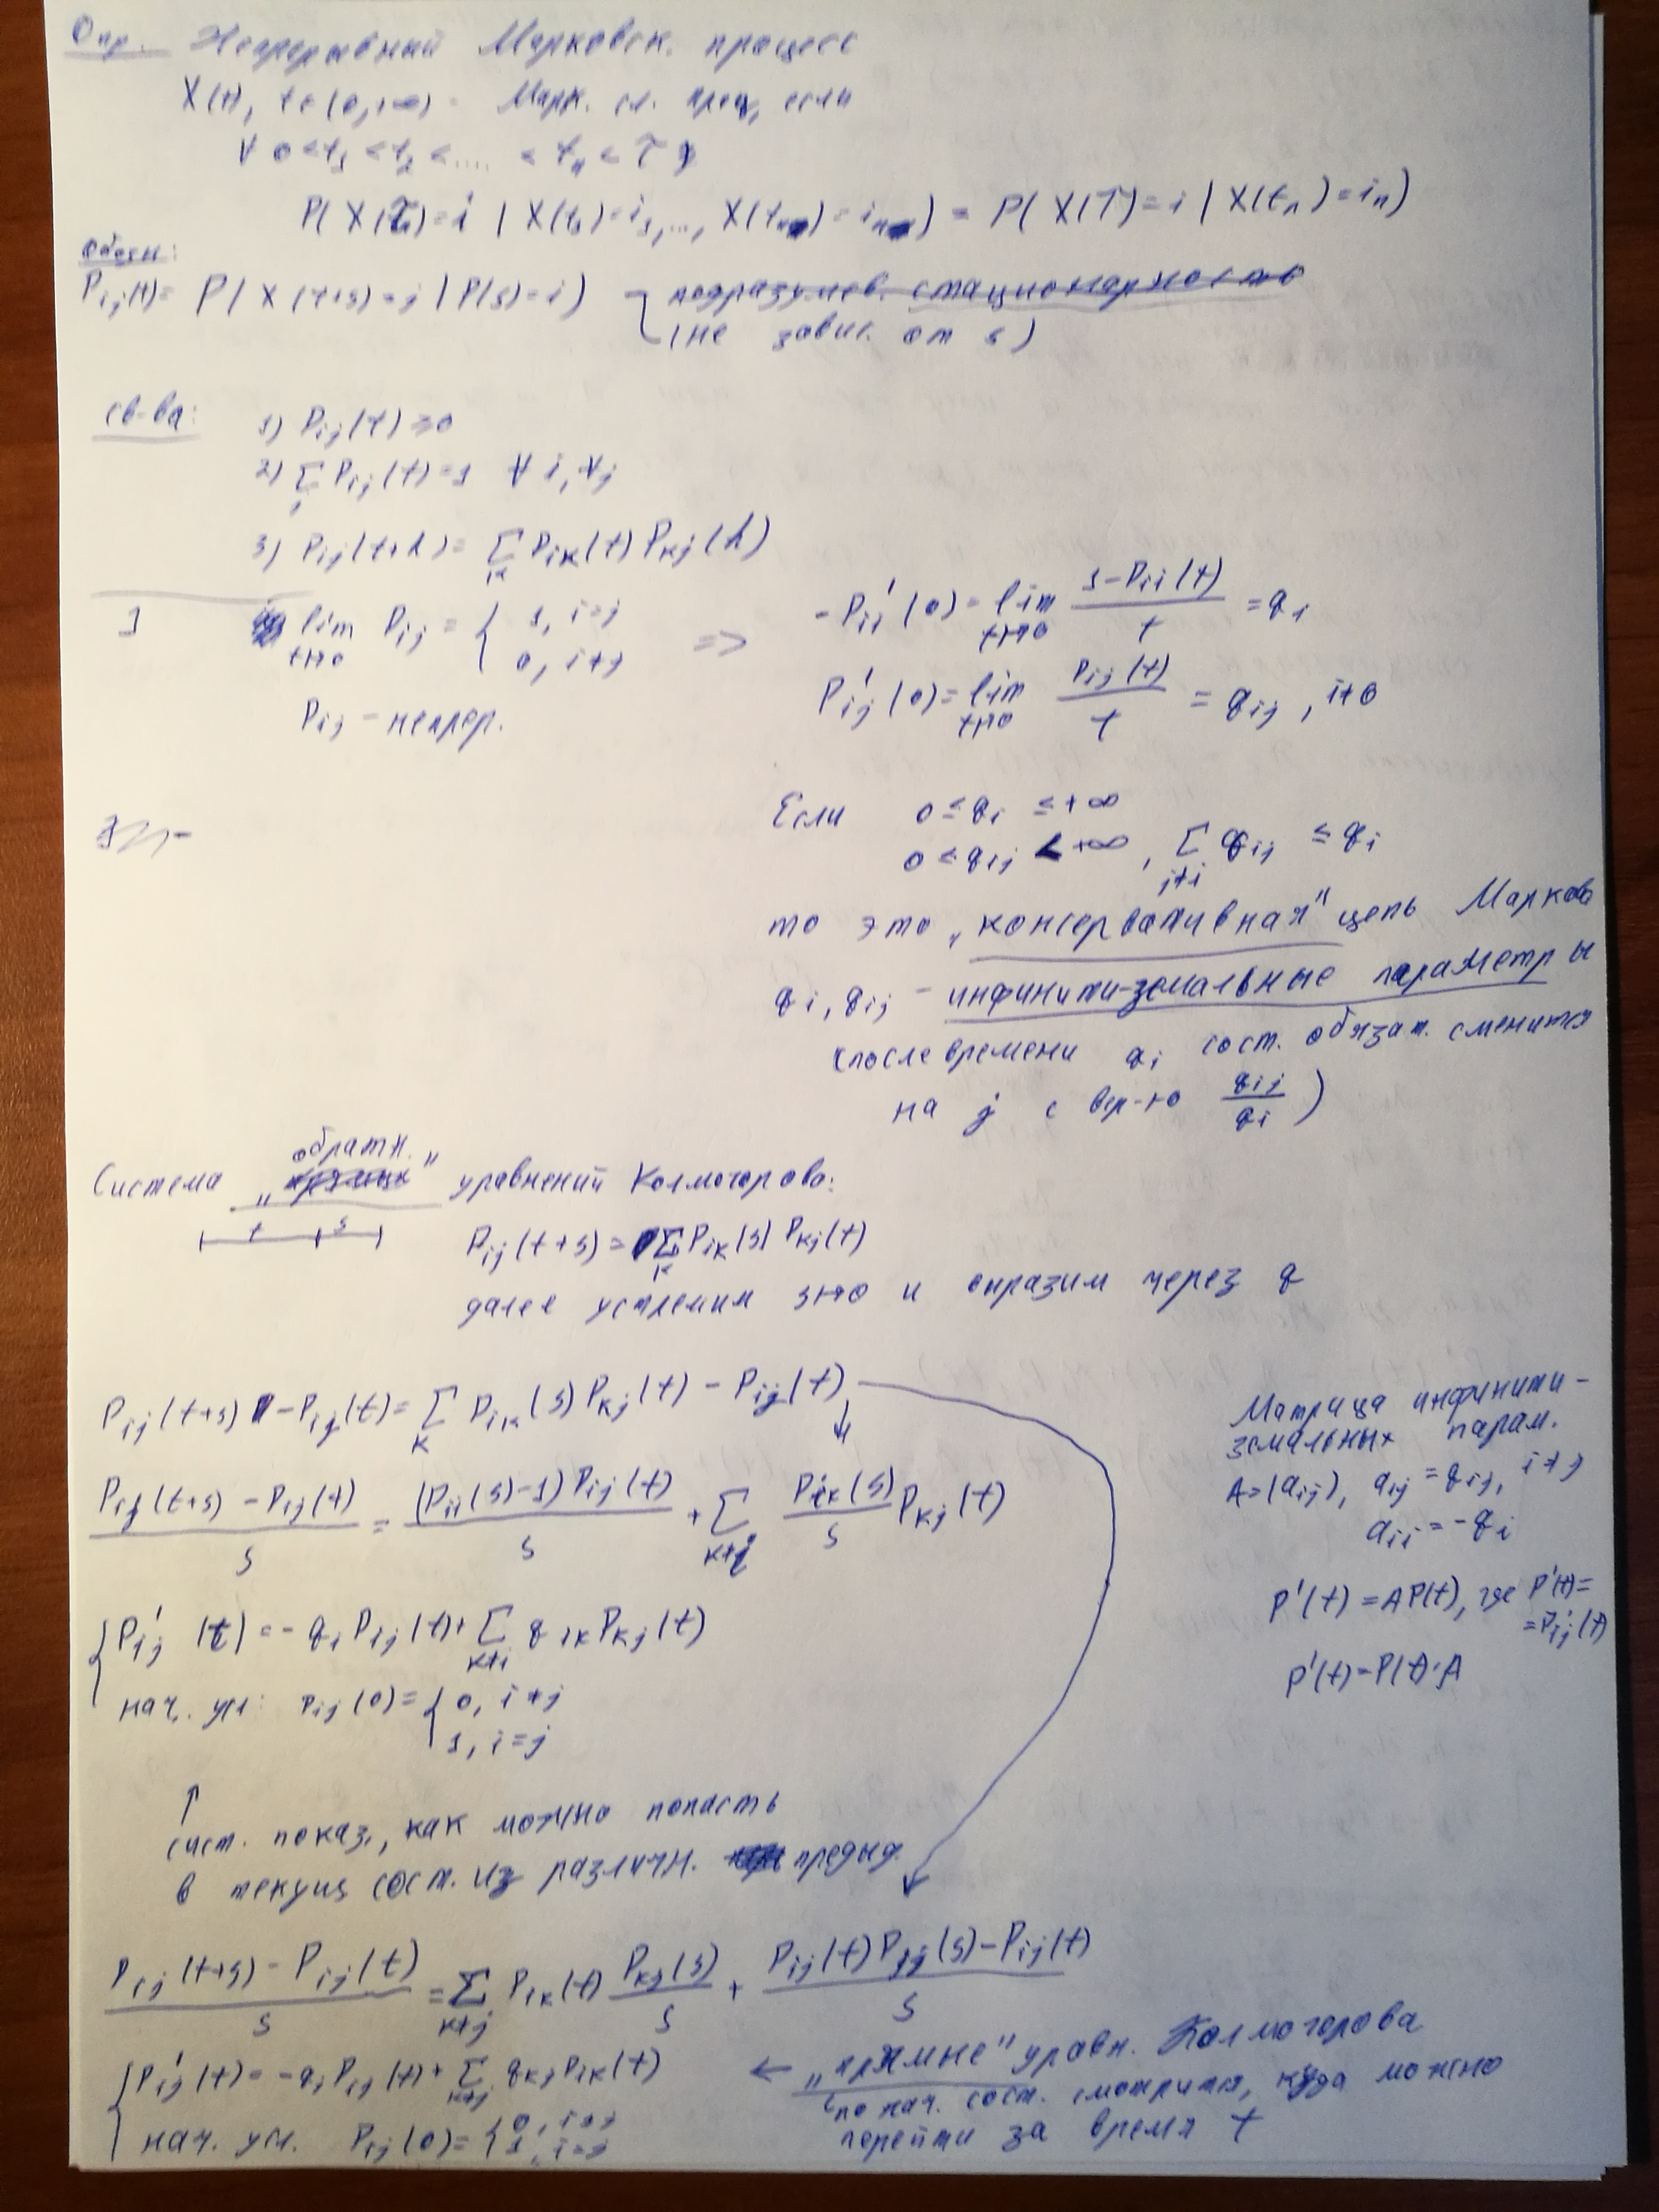 Опр. Непрерывный Марковск. процесс
X(t), t∈(0,+∞) - Марк. сл. проц, если
∀ 0<t₁<t₂<.... <tₙ<τ
P(X(τ)=i | X(t₁)=i₁,..., X(tₙ)=iₙ) = P(X(τ)=i | X(tₙ)=iₙ)
Обозн:
Pij(t)= P(X(t+s)=j | P(s)=i) подразумев. стационарность
(не завис. от s)
св-ва:
1) Pij(t)≥0
2) ∑ Pij(t)=1 ∀i,∀j
3) Pij(t+h)= ∑k Pik(t)Pkj(h)
1 lim t↦0 Pij = { 1, i=j
0, i≠j
=> -Pii'(0)= lim t↦0 (1-Pii(t))/t = qi
Pij - непрер.
Pij'(0)= lim t↦0 Pij(t)/t = qij, i≠0
Если 0≤qi ≤+∞
0≤qij <+∞, ∑j≠i qij ≤qi
то это „консервативная" цепь Маркова
qi, qij - инфинити-земальные параметры
(после времени qi сост. обязат. сменится
на j с вер-ю qij/qi)
Система „обратн." уравнений Колмогорова:
t s
Pij(t+s)=∑k Pik(s)Pkj(t)
далее устремим s↦0 и выразим через q
Pij(t+s)-Pij(t)= ∑k Pik(s)Pkj(t) - Pij(t)
(Pij(t+s)-Pij(t))/s = (Pii(s)-1)Pij(t)/s + ∑k≠i Pik(s)/s Pkj(t)
{ Pij'(t)=-qiPij(t)+∑k≠i qikPkj(t)
нач. усл: Pij(0)={ 0, i≠j
1, i=j
Матрица инфинити-
земальных парам.
A=(aij), aij=qij, i≠j
aii=-qi
P'(t)=AP(t), где P'(t)=
=Pij'(t)
P'(t)=P(t)·A
↑
сист. показ., как можно попасть
в текущ сост. из различн. предыд.
(Pij(t+s)-Pij(t))/s = ∑k≠j Pik(t) Pkj(s)/s + (Pij(t)Pjj(s)-Pij(t))/s
{ Pij'(t)=-qjPij(t)+∑k≠j qkjPik(t)
нач. усл. Pij(0)={ 0, i≠j
1, i=j
← „прямые" уравн. Колмогорова
по нач. сост. смотрится, куда можно
перейти за время t